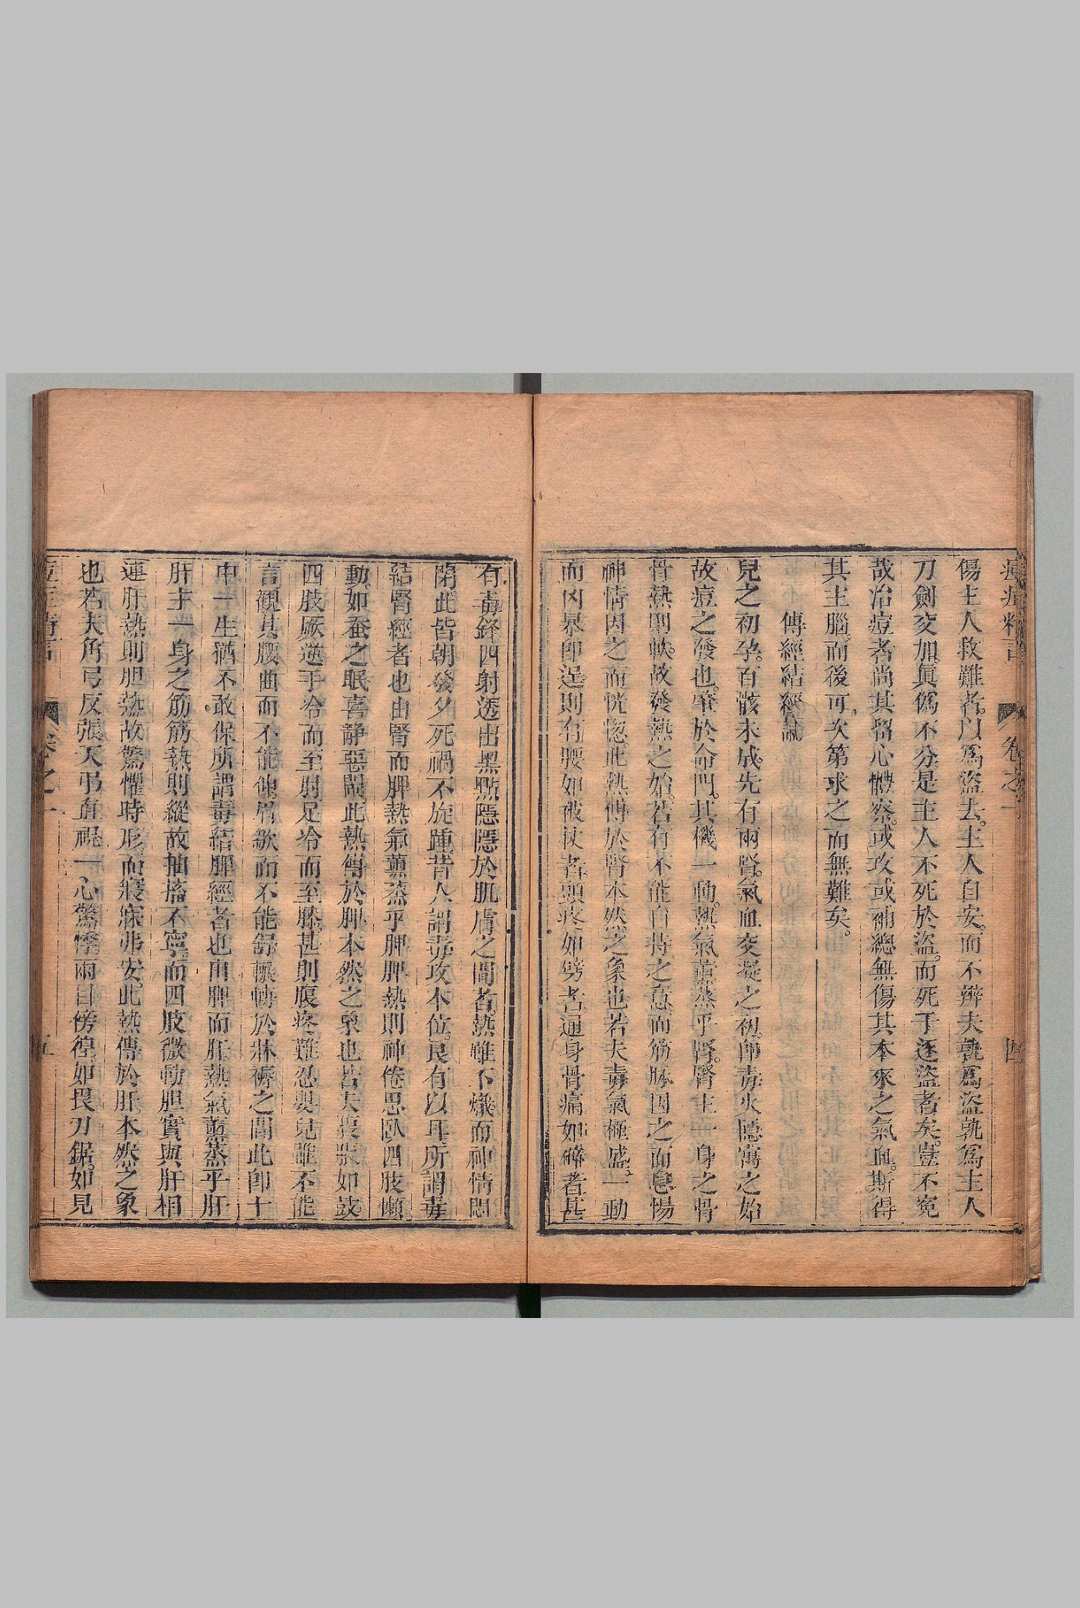 痘疹精言 卷之一 四
傷主人救難者。以爲盜去。主人自安。而不辨夫孰爲盜孰爲主人
刀劍交加眞僞不分是主人不死於盜。而死于逐盜者矣。豈不寃
哉冶痘者尚其畱心軆察。或攻或補總無傷其本來之氣血。斯得
其主腦而後可次第求之而無難矣。
傳經結經論
兒之初孕。百骸未成。先有兩腎。氣血交凝之初。卽毒火隱寓之始
故痘之發也。肇於命門。其機一動。熱氣薰蒸乎腎。腎主一身之骨
骨熱則軟。故發熱之始。若有不能自持之意而筋脉因之而憊惕
神情因之而恍惚此熱傳於腎本然之象也若夫毒氣極盛。一動
而凶暴卽逞則有腰如被杖者頭疼如劈者通身骨痛如磚者甚
有毒鋒四射透出黑點隱隱於肌膚之間者熱雖不熾而神情悶
悶此皆朝發夕死禍不旋踵昔人謂毒攻本位。良有以耳所謂毒
結腎經者也由腎而脾熱氣薰蒸乎脾脾熱則神倦思臥四肢懶
動。如蚕之眠喜静惡鬧此熱傳於脾本然之象也若夫畏狀如鼓
四肢厥逆手冷而至肘足冷而至膝甚則腹疼難忍嬰兒雖不能
言觀其腰曲而不能伸臂歛而不能舒輾轉於牀褥之間此卽十
中一生猶不敢保所謂毒結脾經者也由脾而肝熱氣薰蒸乎肝
肝主一身之筋筋熱則縱故抽搐不寧。而四肢微動胆實與肝相
連肝熱則胆熱故驚懼時形。而寢寐弗安。此熱傳於肝本然之象
也若夫角弓反張天弔直視一心驚悸兩目傍徨如畏刀鋸。如見
卷之一 五